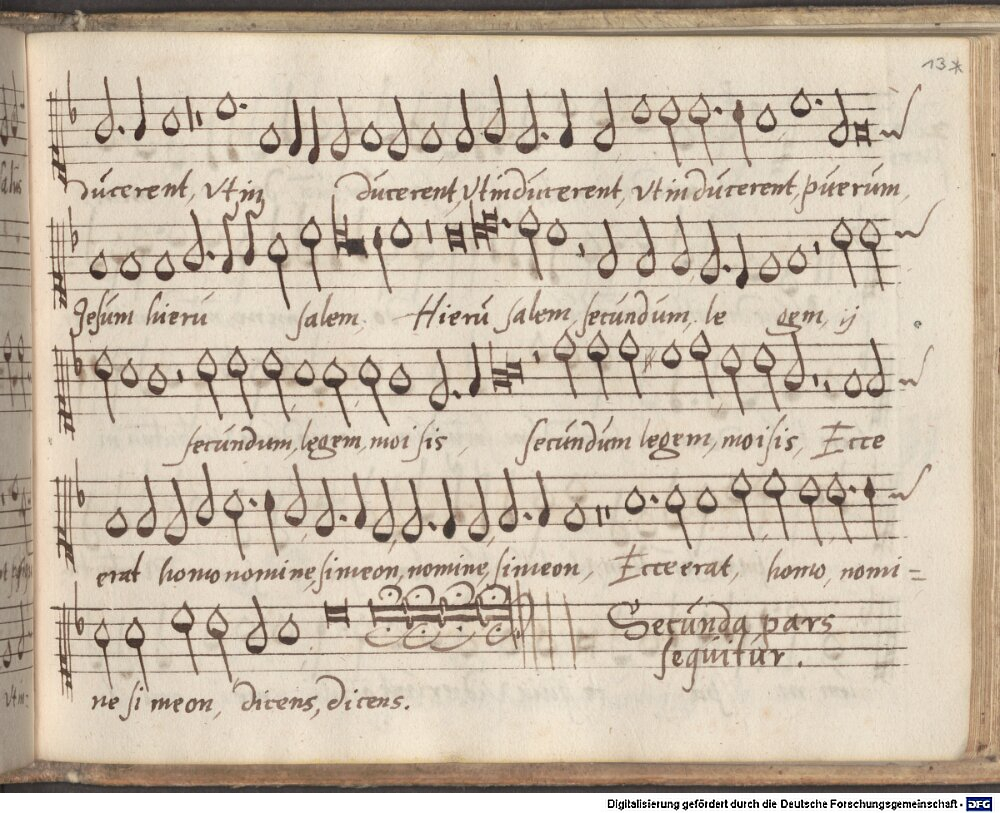 13*
ducerent, Vt in ducerent, Vt inducerent, Vt inducerent, puerum,
Jesum hieru salem, Hieru salem, secundum, le gem, ij
secundum, legem, moi sis, secundum legem, moisis, Ecce
erat homo nomine, simeon, nomine, simeon, Ecce erat, homo, nomi=
ne si meon, dicens, dicens.
Secunda pars
sequitur.
Digitalisierung gefördert durch die Deutsche Forschungsgemeinschaft - DFG